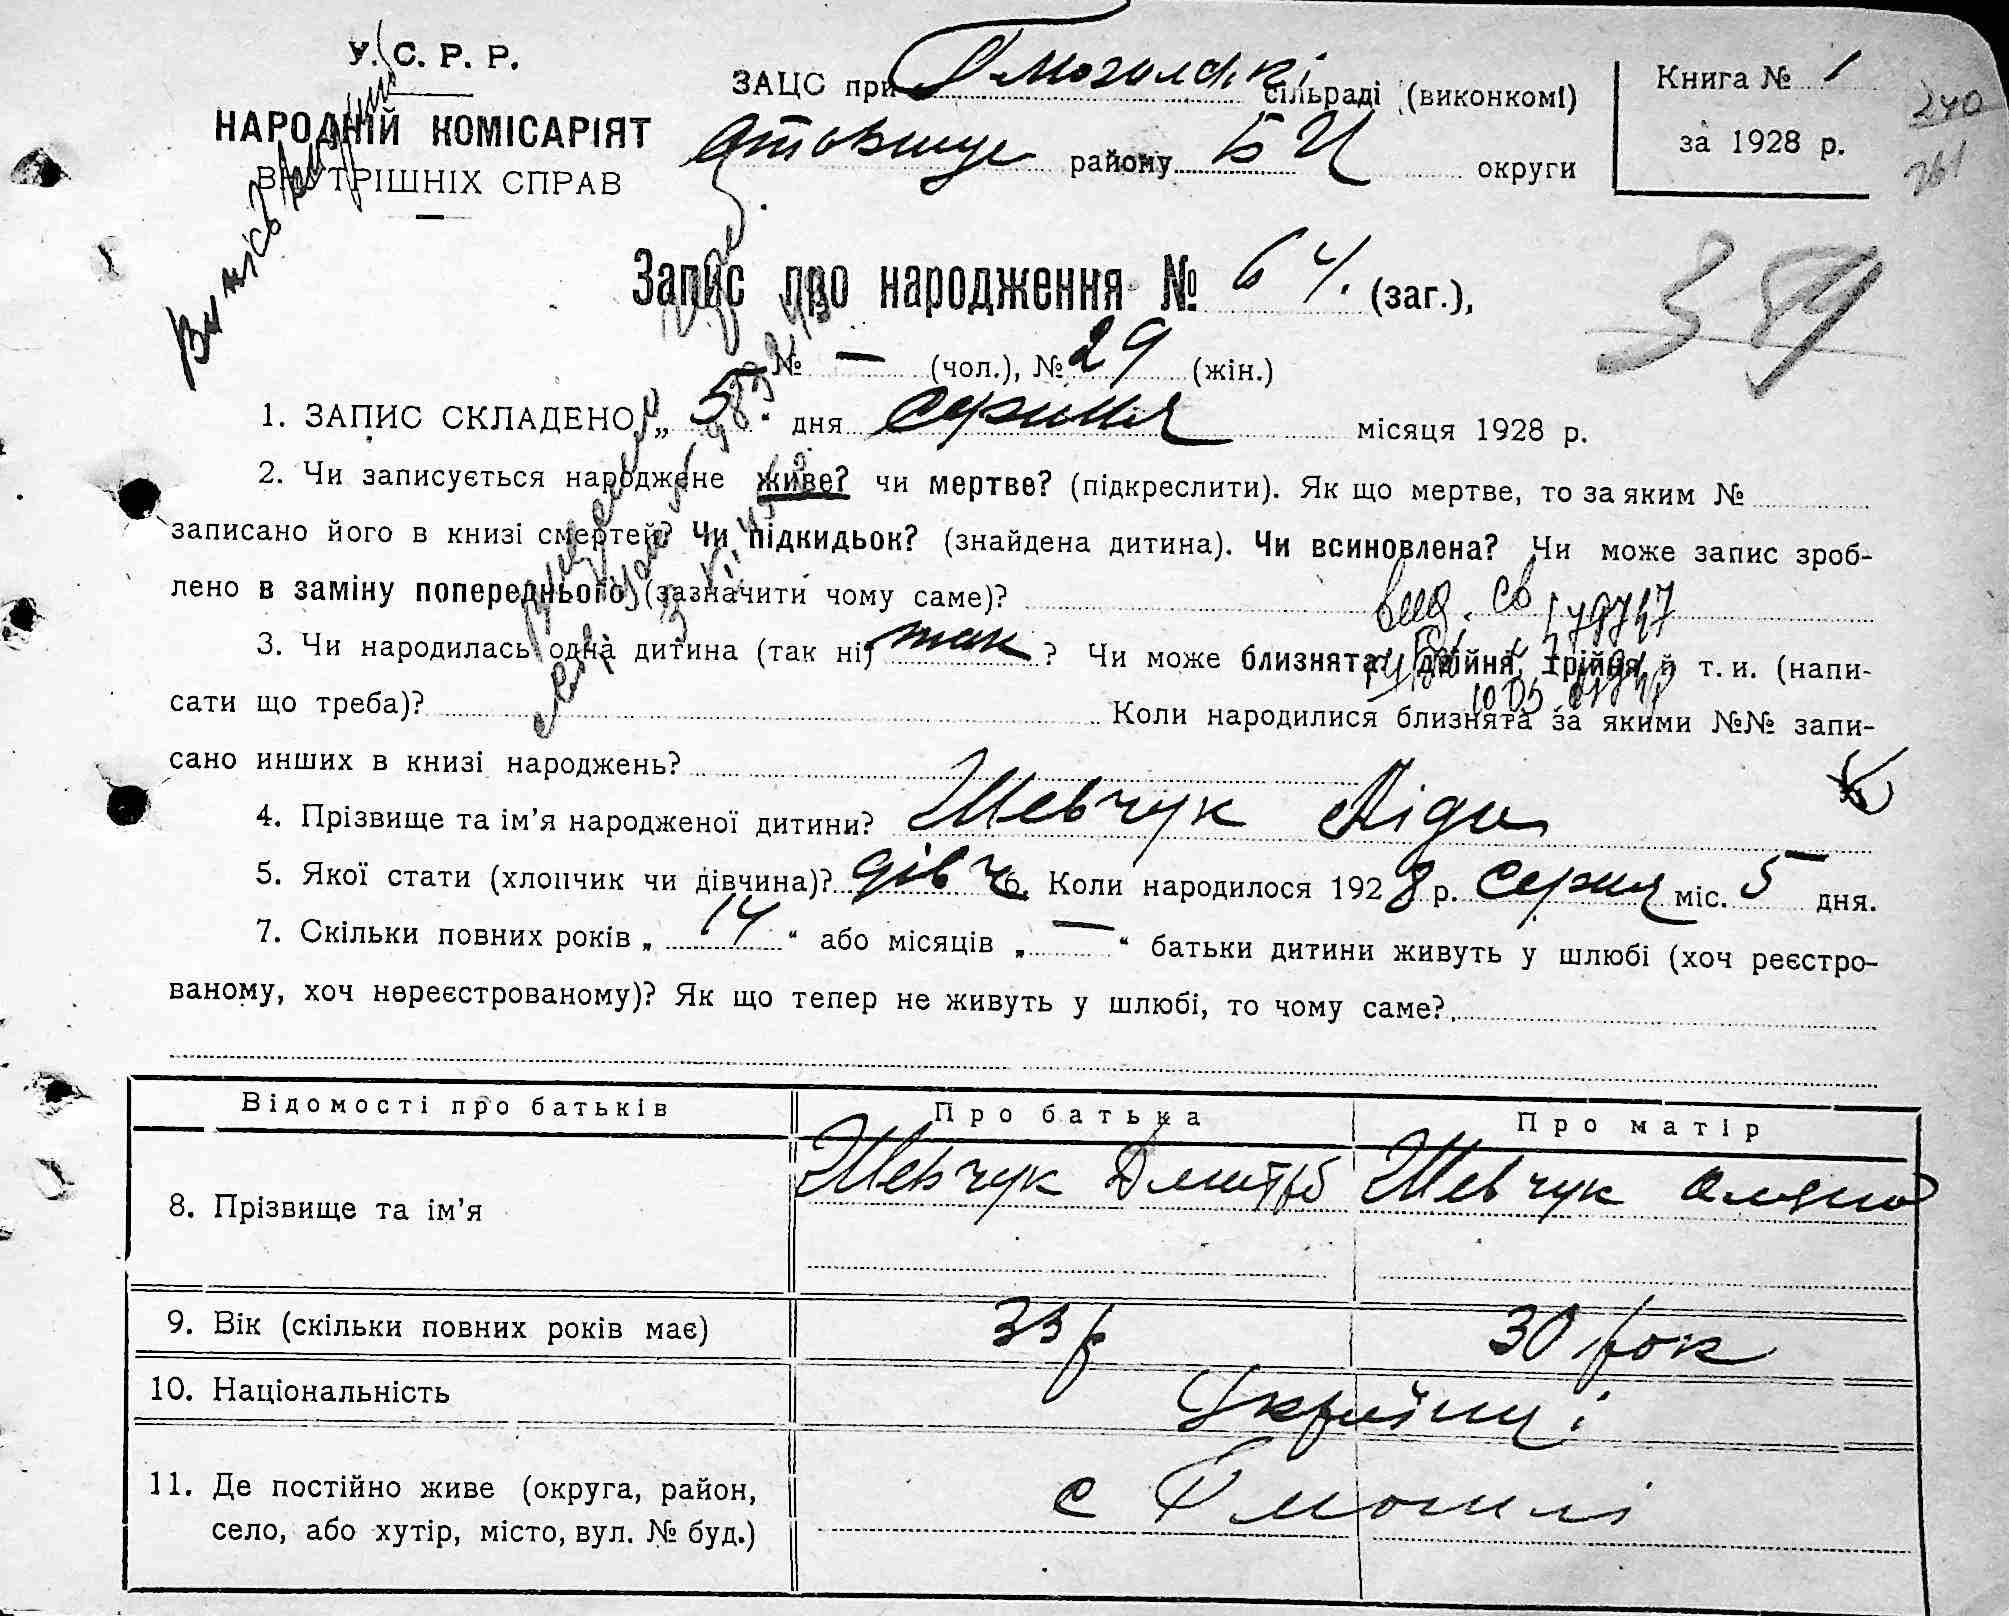 У. С. Р. Р.
НАРОДНІЙ КОМІСАРІЯТ
ВНУТРІШНІХ СПРАВ
ЗАЦС при сільраді (виконкомі)
району БЦ округи
Книга № 1
за 1928 р.
240
261
Запис про народження № 64. (заг.),
389
№ — (чол.), № 29 (жін.)
1. ЗАПИС СКЛАДЕНО „ 5 “ дня серпня місяця 1928 р.
2. Чи записується народжене живе? чи мертве? (підкреслити). Як що мертве, то за яким №
записано його в книзі смертей? Чи підкидьок? (знайдена дитина). Чи всиновлена? Чи може запис зроб-
лено в заміну попереднього (зазначити чому саме)?
вид. св
3. Чи народилась одна дитина (так ні) так ? Чи може близнята: двійня, трійня й т. и. (напи-
сати що треба)? Коли народилися близнята за якими №№ запи-
сано инших в книзі народжень?
4. Прізвище та ім’я народженої дитини? Шевчук Ліда
5. Якої стати (хлопчик чи дівчина)? дівч 6. Коли народилося 1928 р. серпня міс. 5 дня.
7. Скільки повних років „ 14 “ або місяців „ — “ батьки дитини живуть у шлюбі (хоч реєстро-
ваному, хоч нереєстрованому)? Як що тепер не живуть у шлюбі, то чому саме?
Відомості про батьків Про батька Про матір
8. Прізвище та ім’я Шевчук Дмитро Шевчук
9. Вік (скільки повних років має) 33 р 30 рок
10. Національність Українці
11. Де постійно живе (округа, район, с
село, або хутір, місто, вул. № буд.)